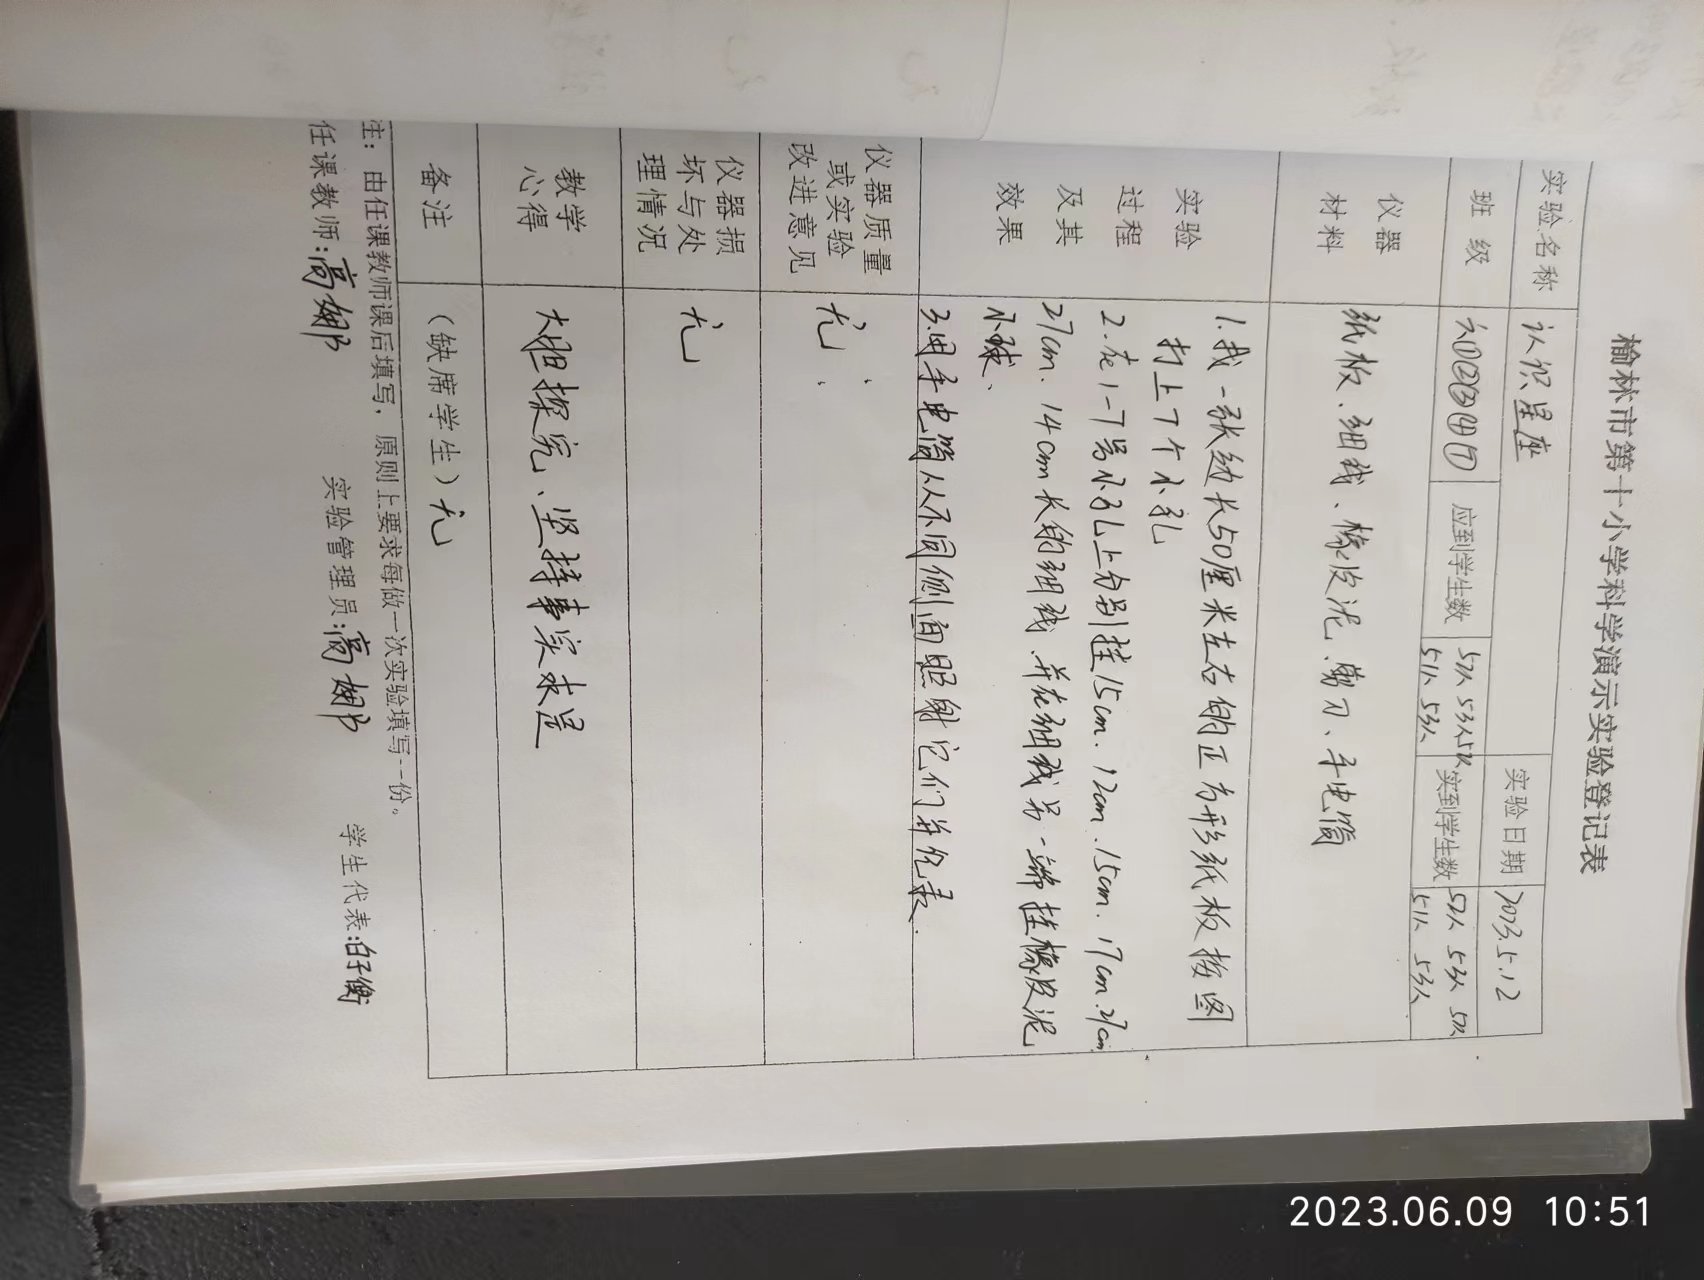 榆林市第十小学科学演示实验登记表
实验名称 认识星座 实验日期 2023.5.12
班 级 六①②③④⑦ 应到学生数 52人 53人 52人 51人 53人 实到学生数 52人 53人 52人 51人 53人
仪器材料 纸板、细线、橡皮泥、剪刀、手电筒
实验过程及其效果
1.找一张边长50厘米左右的正方形纸板按图
打上7个小孔
2.在1-7号小孔上分别挂15cm.12cm.15cm.17cm.27cm
27cm.14cm长的细线.并在细线另一端挂橡皮泥
小球、
3.用手电筒从不同侧面照射它们并记录.
仪器质量或实验改进意见 无
仪器损坏与处理情况 无
教学心得 大胆探究、坚持事实求是
备注 (缺席学生)无
注：由任课教师课后填写，原则上要求每做一次实验填写一份。
任课教师:高娜 实验管理员:高娜 学生代表:
2023.06.09 10:51